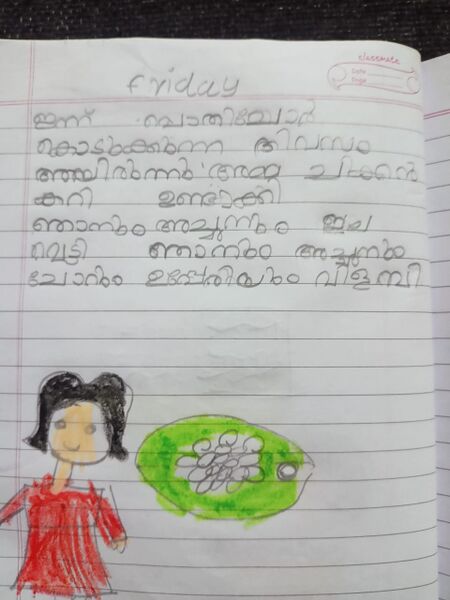 classmate
Date
Page
Friday
ഇന്ന് പൊതിച്ചോർ
കൊടുക്കുന്ന ദിവസം
അമ്മ ചിക്കൻ
കറി ഉണ്ടാക്കി
ഞാനും അച്ചുനും ഇല
വെട്ടി ഞാനും അച്ചുനും
ചോറും ഉപ്പേരിയും വിളമ്പി